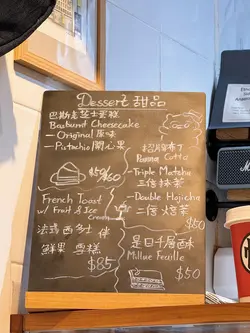 Dessert 甜品
巴斯克芝士蛋糕
Basband Cheesecake
- Original 原味
- Pistachio 開心果
$50/$60
French Toast
w/ Fruit & Ice
Cream
法蘭西多士 伴
鮮果 雪糕
$85
招牌布丁
Panna Cotta
- Triple Matcha
三倍抹茶
- Double Hojicha
二倍焙茶
$50
是日千層酥
Millue Feeulle
$50
Marshall